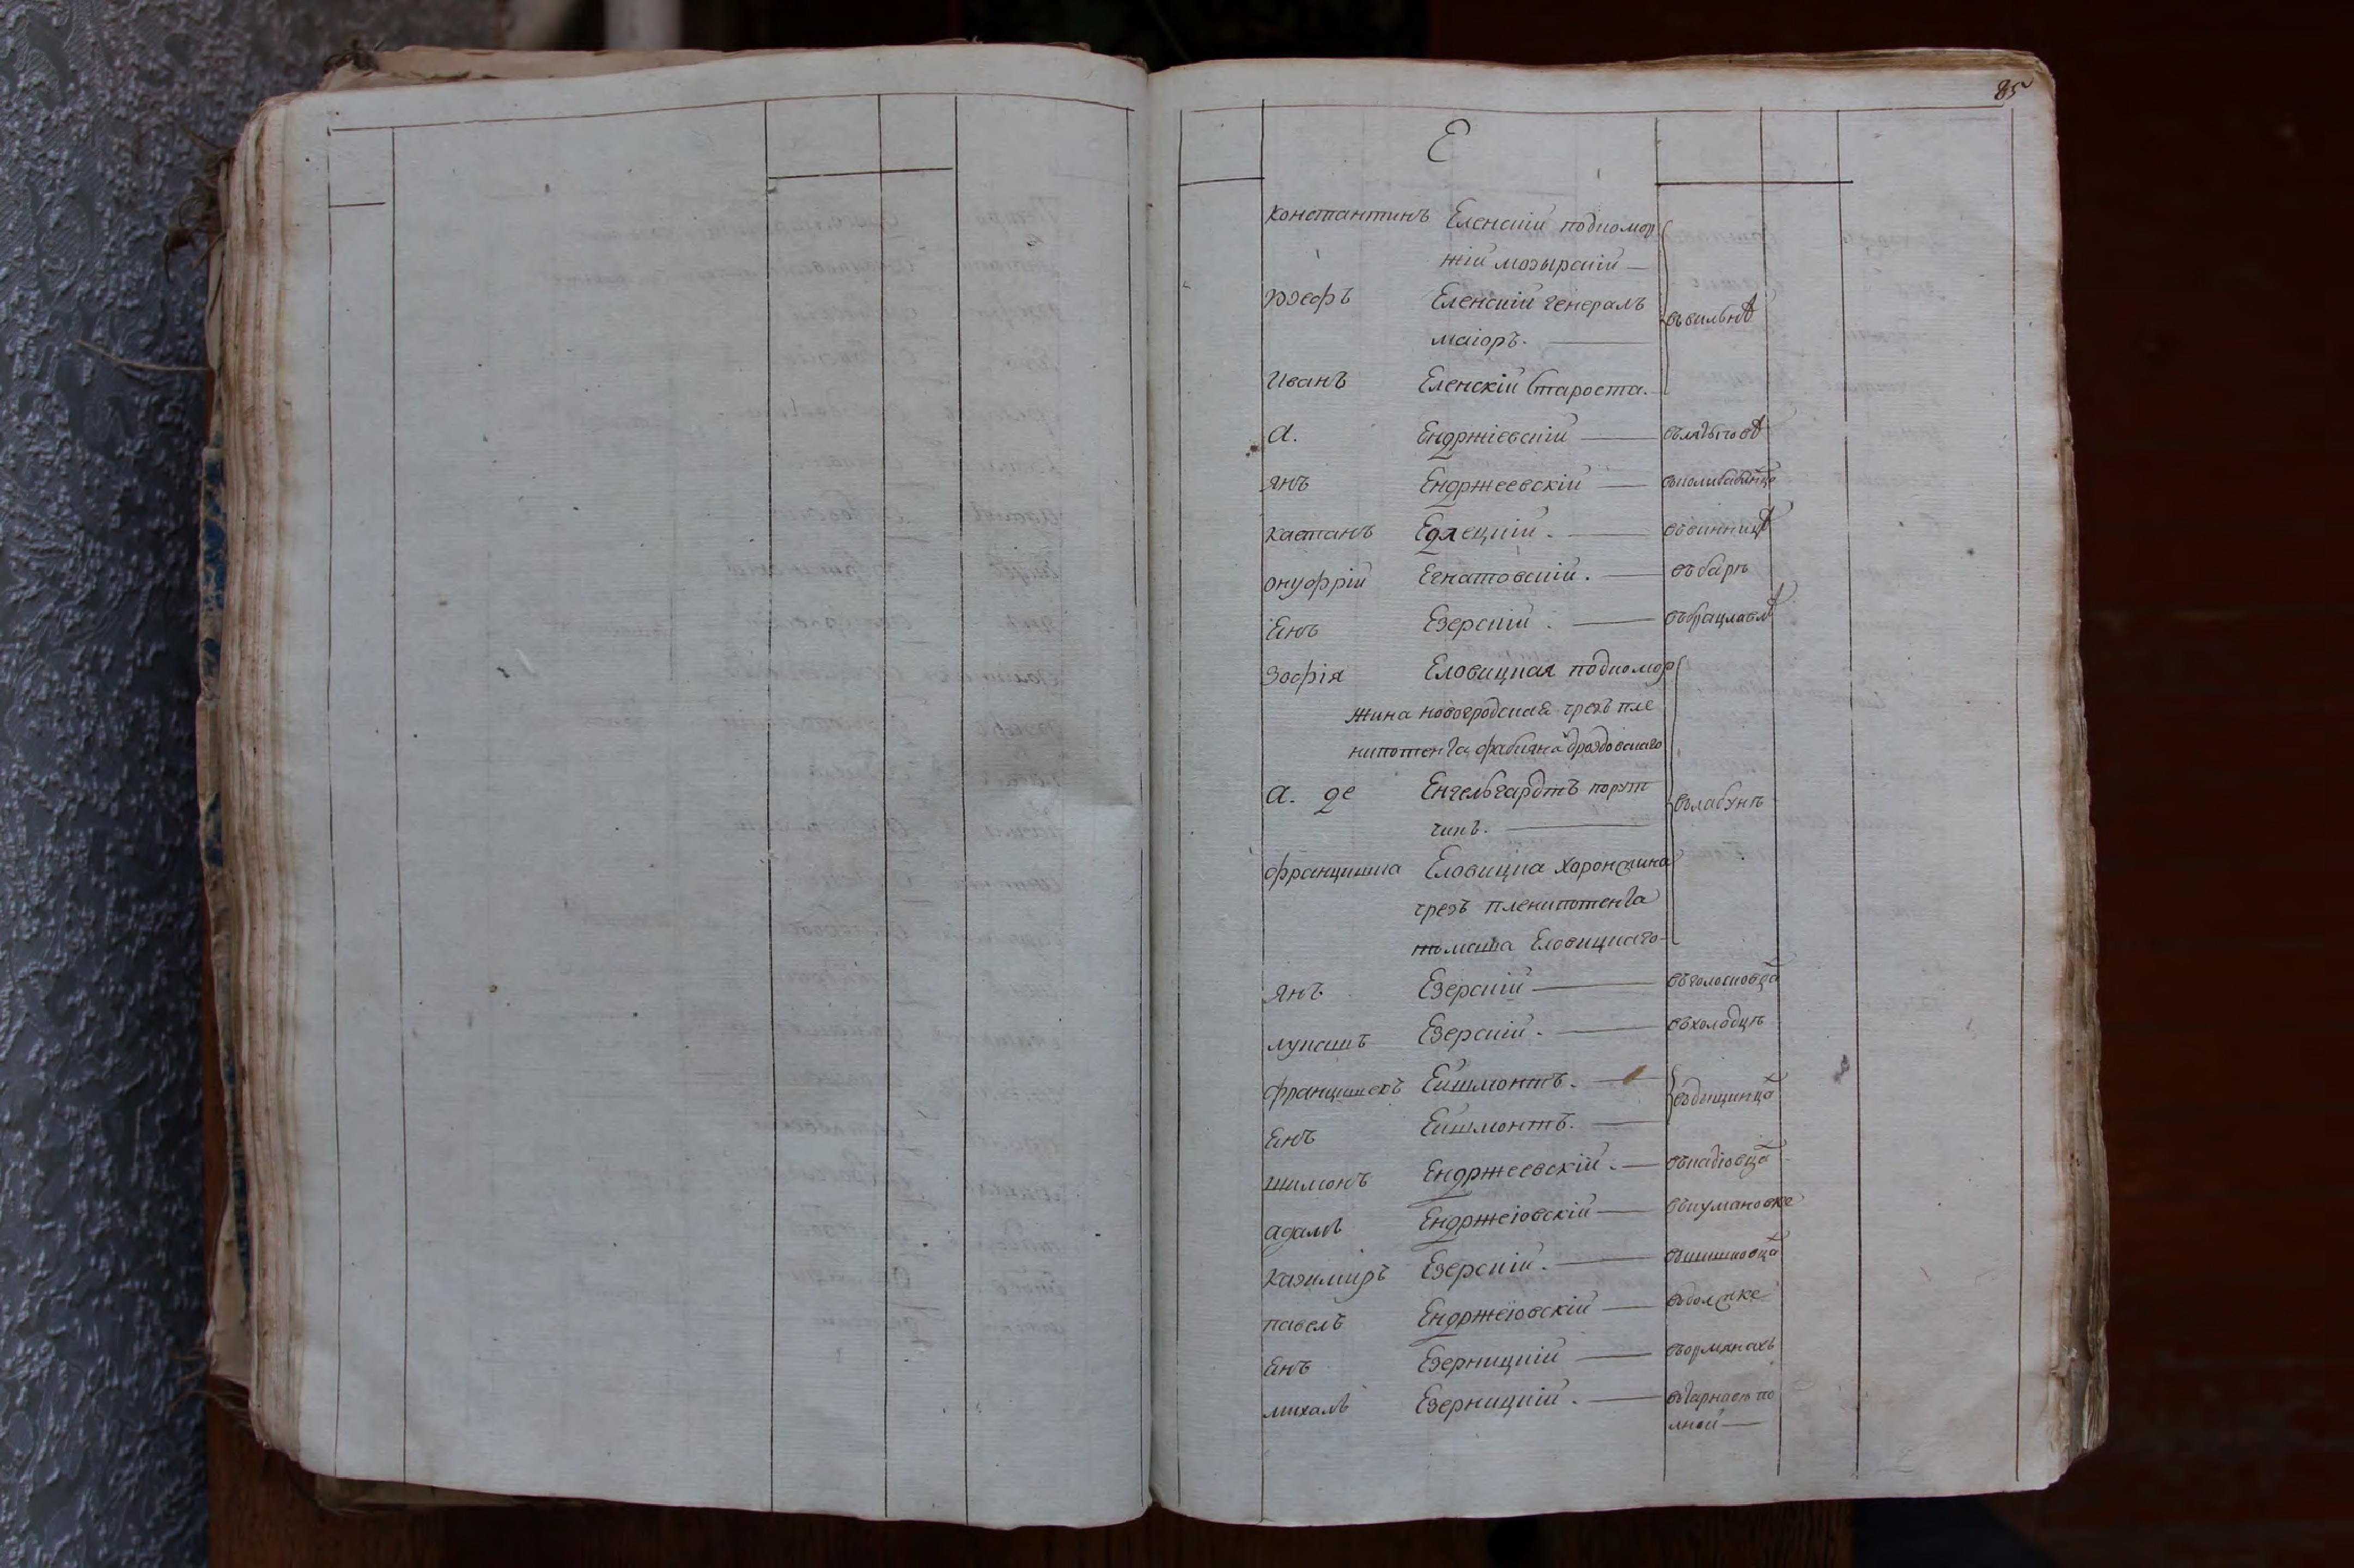 85
Е
Константинъ Еленскій подкомор
жій мозырскій —
Юзефъ Еленскій генералъ
маіоръ. — въ вильнѣ
Иванъ Еленскій Староста.
А. Ендржіевскій —
Янъ Ендржеевскій —
Каетанъ Едлецкій. — въ винницѣ
Онуфрій Егнатовскій. — въ барѣ
Янъ Езерскій. — въ брацлавлѣ
Зофія Еловицкая подкомор
жина новогродская чрезъ пле
нипотента фабияна дроздовскаго
А. де Енгельгардтъ порут
чикъ. — въ лабунѣ
Францишка Еловицка Хоронжина
чрезъ пленипотента
томаша Еловицкаго —
Янъ Езерскій —
Лукашъ Езерскій. — въ холодцѣ
Францишекъ Ейшмонтъ. —
Янъ Ейшмонтъ. —
Шимонъ Ендржеевскій. —
Адамъ Ендржеіовскій — въ кумановке
Казимиръ Езерскій. —
Павелъ Ендржеіовскій —
Янъ Езерницкій — въ ормянахъ
Михалъ Езерницкій. —